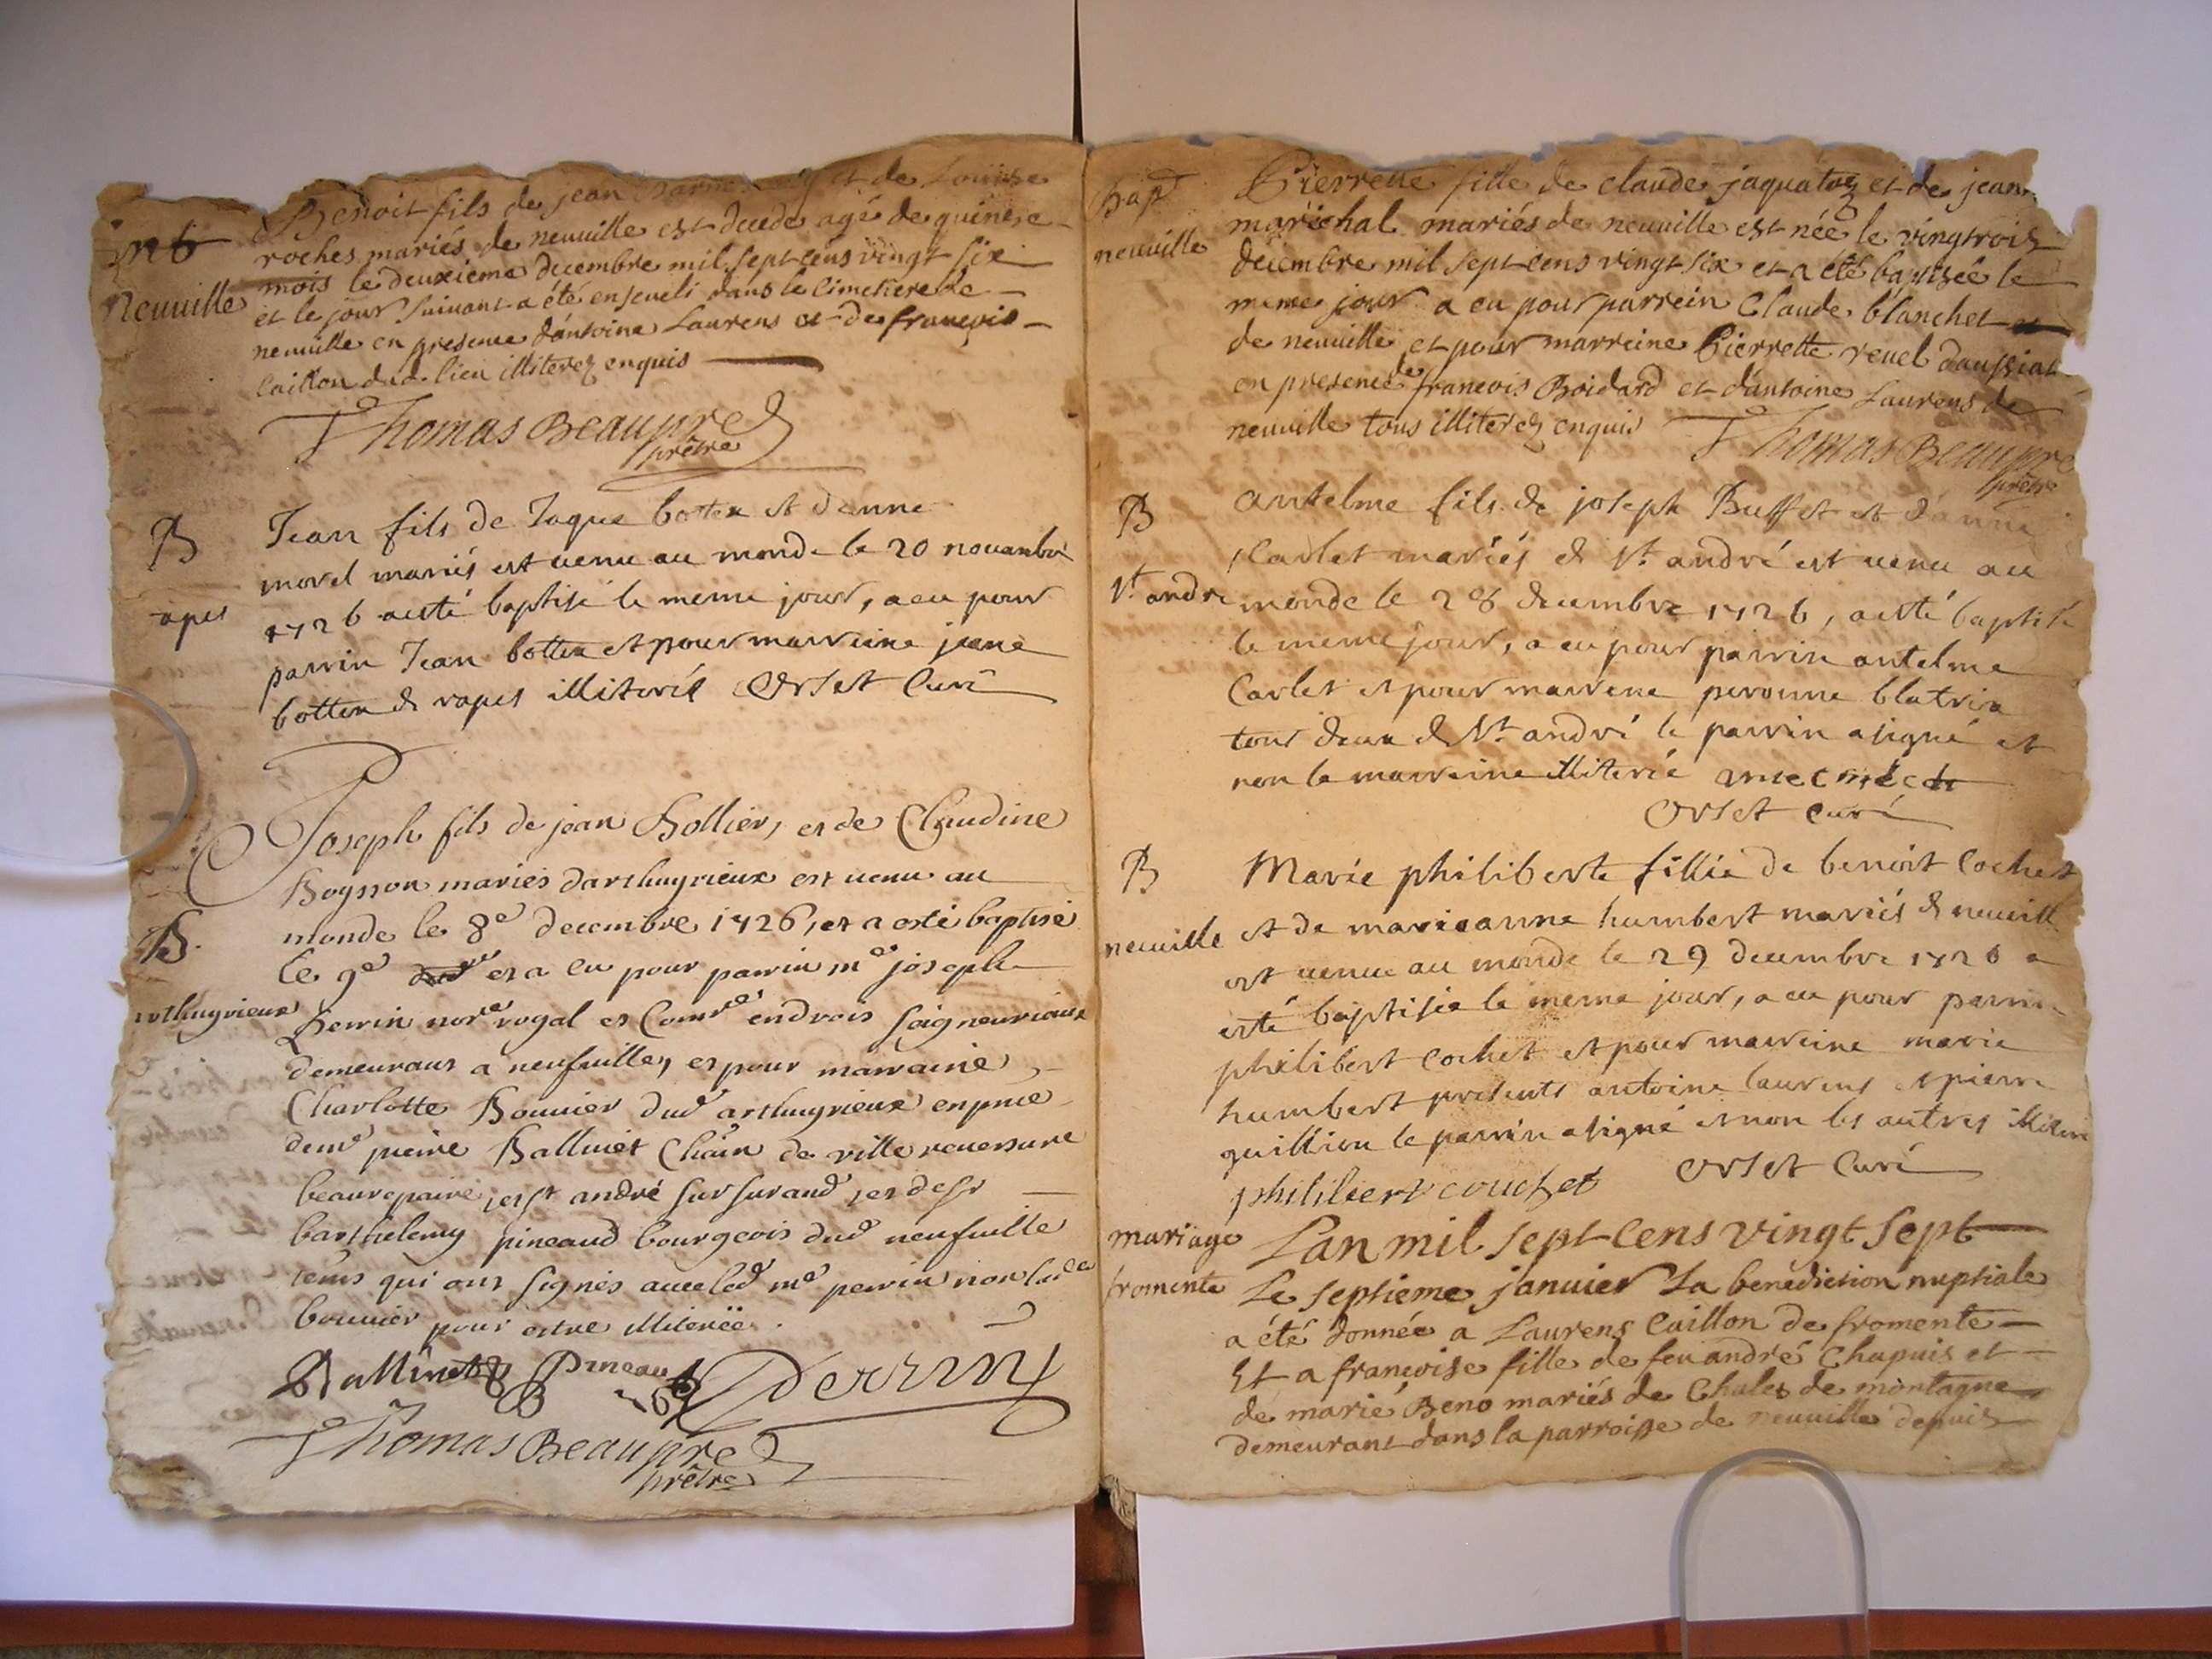 Benoit fils de jean et de Louise
roches mariés de neuville est decede agé de quinze
mois le deuxieme decembre mil sept cens vingt six
et le jour suivant a été enseveli dans le cimetiere de
neuville en presence d'antoine Laurens et de françois
Caillon dud. lieu illiterez enquis
Neuville
Thomas Beaupre
prêtre
B
Jean fils de Jaque bottex et d'anne
morel mariés est venu au monde le 20 novambre
1726 a esté baptisé le meme jour, a eu pour
parrin Jean bottex et pour marreine jeane
bottex de rapes illiterés Orset Curé
apes
Joseph fils de jean Bollier, et de Claudine
Boysson mariés darthuyrieux est venu au
monde le 8e decembre 1726, et a esté baptisé
B.
le 9e dud et a eu pour parrin me joseph
rthuyrieux
Perrin nore royal et Comre endrois seigneuriaux
demeurant a neufville, et pour marraine
Charlotte Bouvier dud arthuyrieux en pnce
de me pierre Balliuet Chãin de ville reversure
beaurepaire, et st andré sur surand, et de sr
barthelemy pineaud bourgeois dud neufville
temis qui ont signés avec led me perrin non lade
bouvier pour estre illiterée.
Balliuet Pineaud Perrin
Thomas Beaupre
prêtre
Bap
neuville
Pierrette fille de claude jaquatoz et de jean
maréchal mariés de neuville est née le vingtrois
decembre mil sept cens vingt six et a été baptisée le
meme jour a eu pour parrein Claude blanchet
de neuville et pour marreine Pierrette revel daussiat
en presence de francois Boidard et d'antoine Laurens de
neuville tous illiterez enquis Thomas Beaupre
prêtre
B
Antelme fils de joseph Buffet et d'anne
Carlet mariés de St andré est venu au
St andre
monde le 28 decembre 1726, a esté baptisé
le meme jour, a eu pour parrin antelme
Carlet et pour marrene peronne blatrix
tous deux de St andré le parrin a signé et
non la marreine illiterée
Orset Curé
B
Marie philiberte fillie de benoit Cochet
neuville
et de marieanne humbert mariés de neuvill
est venue au monde le 29 decembre 1726 a
esté baptisée le meme jour, a eu pour parrin
philibert Cochet et pour marreine marie
humbert presents antoine laurens et pierre
guillion le parrin a signé et non les autres illitere
philibert couchet Orset Curé
mariage
fromente
Lan mil sept cens vingt sept
Le septieme janvier La benediction nuptiale
a été donnée a Laurens Caillon de fromente
Et a françoise fille de feu andré Chapuis et
de marie Beno mariés de Chales de montagne
demeurant dans la parroisse de neuville depuis